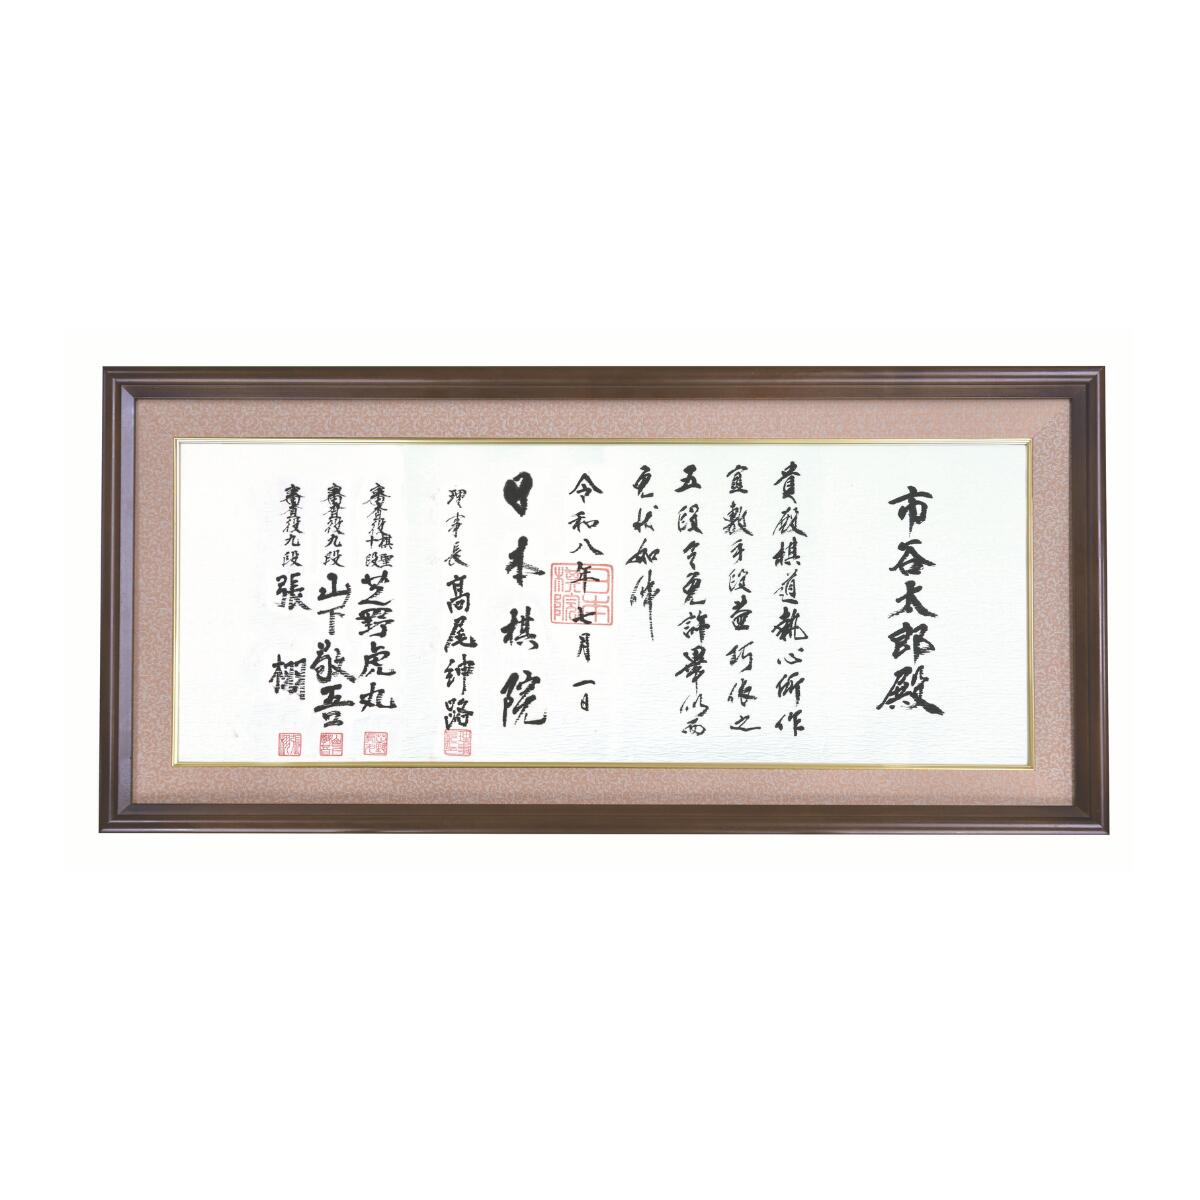 市谷太郎殿
貴殿棋道執心所作
宜敷手段益巧依之
五段令免許畢仍而
免状如件
令和八年七月一日
日本棋院
理事長 髙尾紳路
審査役 棋聖 十段 芝野虎丸
審査役九段 山下敬吾
審査役九段 張 栩